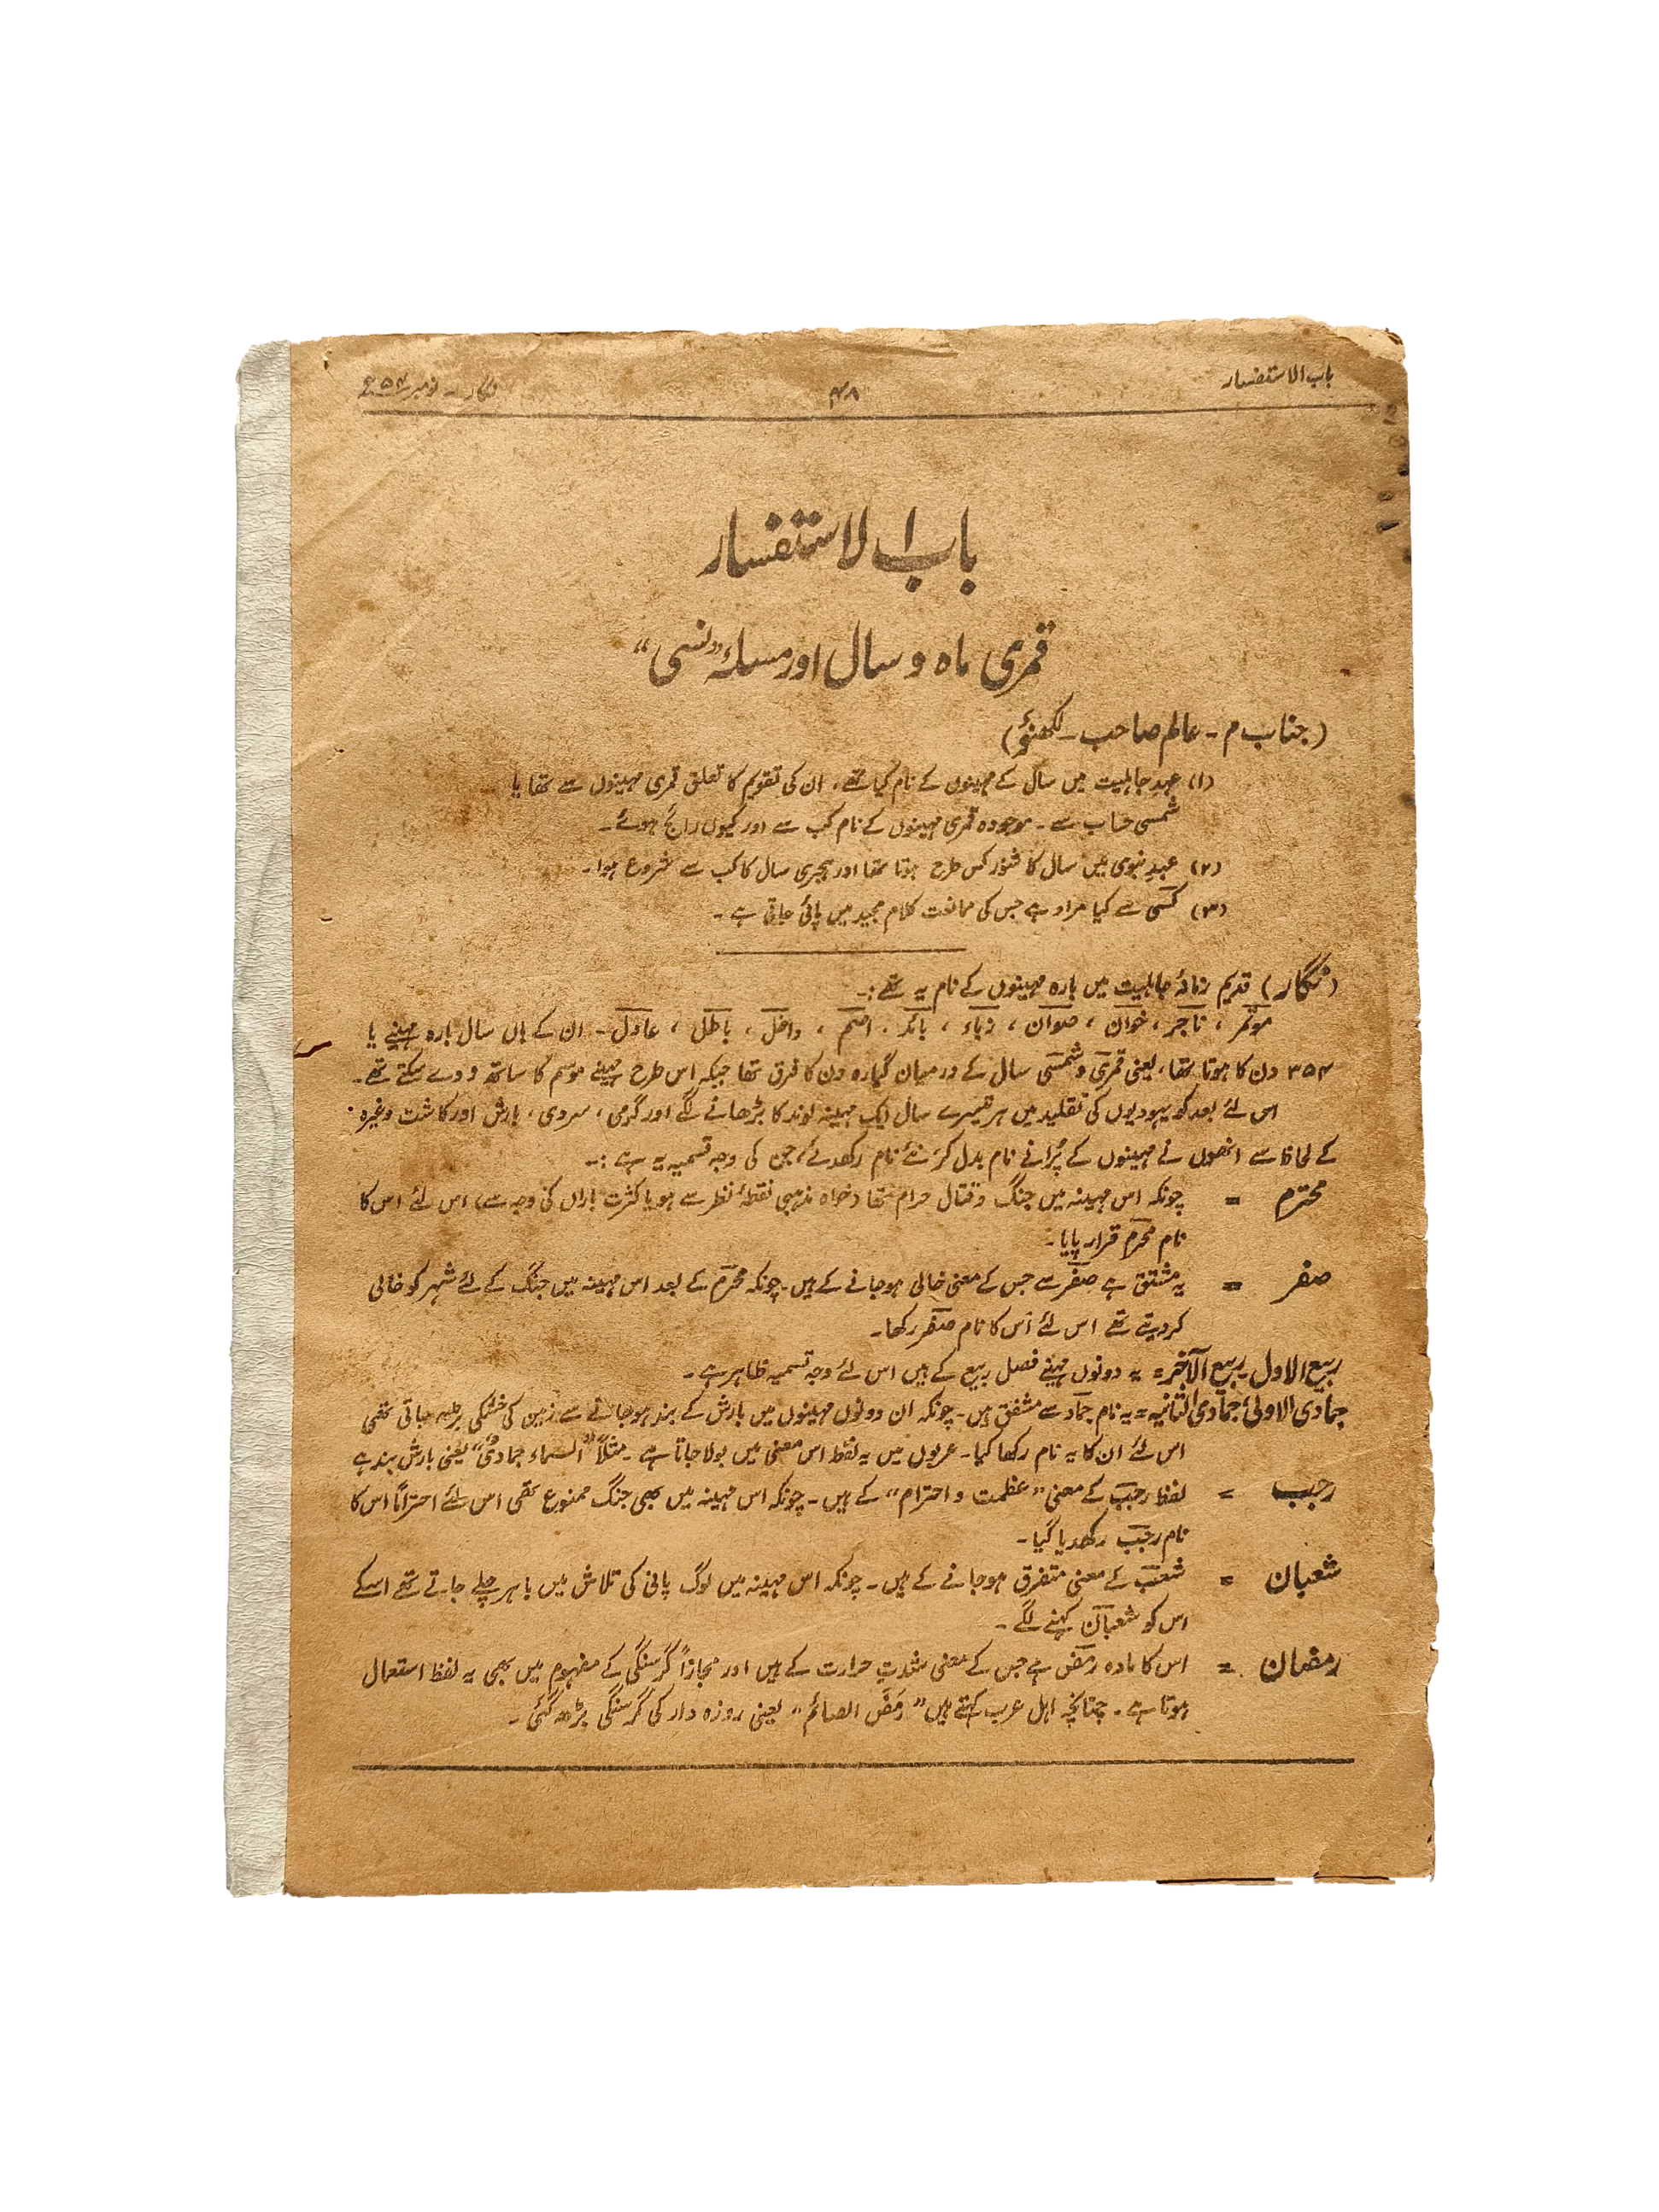 باب الاستفسار
۴۸
نگار - نومبر ۵۴ء
باب الاستفسار
قمری ماہ و سال اور مسئلہ "نسی"
(جناب م - عالم صاحب - لکھنؤ)
(۱) عہد جاہلیت میں سال کے مہینوں کے نام کیا تھے، ان کی تقویم کا تعلق قمری مہینوں سے تھا یا
شمسی حساب سے - موجودہ قمری مہینوں کے نام کب سے اور کیوں رائج ہوئے -
(۲) عہد نبوی میں سال کا شور کس طرح ہوتا تھا اور ہجری سال کا کب سے شروع ہوا -
(۳) کسی سے کیا مراد ہے جس کی ممانعت کلام مجید میں پائی جاتی ہے -
(نگار) قدیم زمانۂ جاہلیت میں بارہ مہینوں کے نام یہ تھے :-
موتمر ، ناجر ، خوان ، صوان ، زباء ، بائد ، اصم ، داخل ، باطل ، عادل - ان کے ہاں سال بارہ مہینے یا
۳۵۴ دن کا ہوتا تھا، یعنی قمری و شمسی سال کے درمیان گیارہ دن کا فرق تھا جبکہ اس طرح مہینے موسم کا ساتھ نہ دے سکتے تھے -
اس لئے بعد کو یہودیوں کی تقلید میں ہر تیسرے سال ایک مہینہ لوند کا بڑھانے لگے اور گرمی، سردی، بارش اور کاشت وغیرہ
کے لحاظ سے انھوں نے مہینوں کے پُرانے نام بدل کر نئے نام رکھدئے، جن کی وجہ تسمیہ یہ ہے :-
محترم = چونکہ اس مہینہ میں جنگ و قتال حرام تھا (خواہ مذہبی نقطۂ نظر سے ہو یا کثرت باراں کی وجہ سے) اس لئے اس کا
نام محرم قرار پایا -
صفر = یہ مشتق ہے صفر سے جس کے معنی خالی ہوجانے کے ہیں - چونکہ محرم کے بعد اس مہینہ میں جنگ کے لئے شہر کو خالی
کردیتے تھے اس لئے اُس کا نام صفر رکھا -
ربیع الاول ربیع الآخر = یہ دونوں مہینے فصل ربیع کے ہیں اس لئے وجہ تسمیہ ظاہر ہے -
جمادی الاولیٰ جمادی الثانیہ = یہ نام جماد سے مشتق ہیں - چونکہ ان دونوں مہینوں میں بارش کے بند ہوجانے سے زمین کی خشکی بڑھ جاتی تھی
اس لئے ان کا یہ نام رکھا گیا - عربوں میں یہ لفظ اس معنی میں بولا جاتا ہے - مثلاً "السماء جمادیٌ" یعنی بارش بند ہے
رجب = لفظ رجب کے معنی "عظمت و احترام" کے ہیں - چونکہ اس مہینہ میں بھی جنگ ممنوع تھی اس لئے احتراماً اس کا
نام رجب رکھدیا گیا -
شعبان = شعب کے معنی متفرق ہوجانے کے ہیں - چونکہ اس مہینہ میں لوگ پانی کی تلاش میں باہر چلے جاتے تھے اسکے
اس کو شعبان کہنے لگے -
رمضان = اس کا مادہ رمض ہے جس کے معنی شدتِ حرارت کے ہیں اور مجازاً گرسنگی کے مفہوم میں بھی یہ لفظ استعمال
ہوتا ہے - چنانچہ اہل عرب کہتے ہیں "رَمَضَ الصائم" یعنی روزہ دار کی گرسنگی بڑھ گئی -